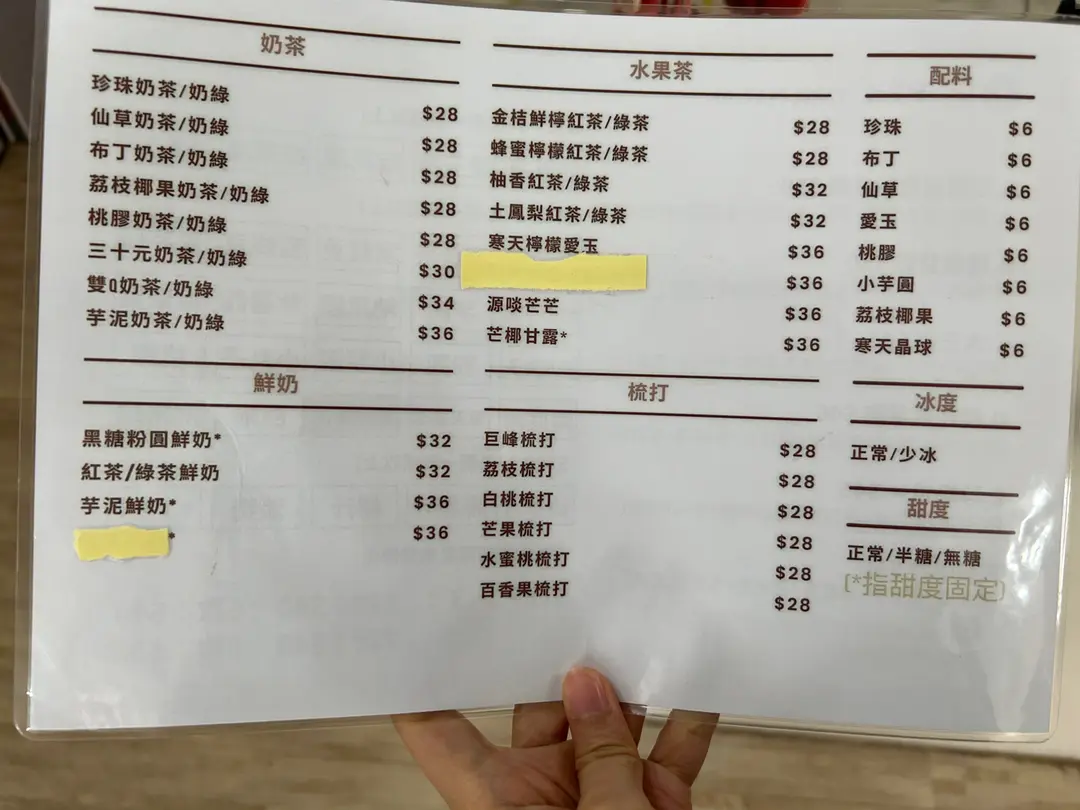 奶茶
珍珠奶茶/奶綠 $28
仙草奶茶/奶綠 $28
布丁奶茶/奶綠 $28
荔枝椰果奶茶/奶綠 $28
桃膠奶茶/奶綠 $28
三十元奶茶/奶綠 $30
雙Q奶茶/奶綠 $34
芋泥奶茶/奶綠 $36
鮮奶
黑糖粉圓鮮奶* $32
紅茶/綠茶鮮奶 $32
芋泥鮮奶* $36
* $36
水果茶
金桔鮮檸紅茶/綠茶 $28
蜂蜜檸檬紅茶/綠茶 $28
柚香紅茶/綠茶 $32
土鳳梨紅茶/綠茶 $32
寒天檸檬愛玉 $36
$36
源啖芒芒 $36
芒椰甘露* $36
梳打
巨峰梳打 $28
荔枝梳打 $28
白桃梳打 $28
芒果梳打 $28
水蜜桃梳打 $28
百香果梳打 $28
配料
珍珠 $6
布丁 $6
仙草 $6
愛玉 $6
桃膠 $6
小芋圓 $6
荔枝椰果 $6
寒天晶球 $6
冰度
正常/少冰
甜度
正常/半糖/無糖
(*指甜度固定)